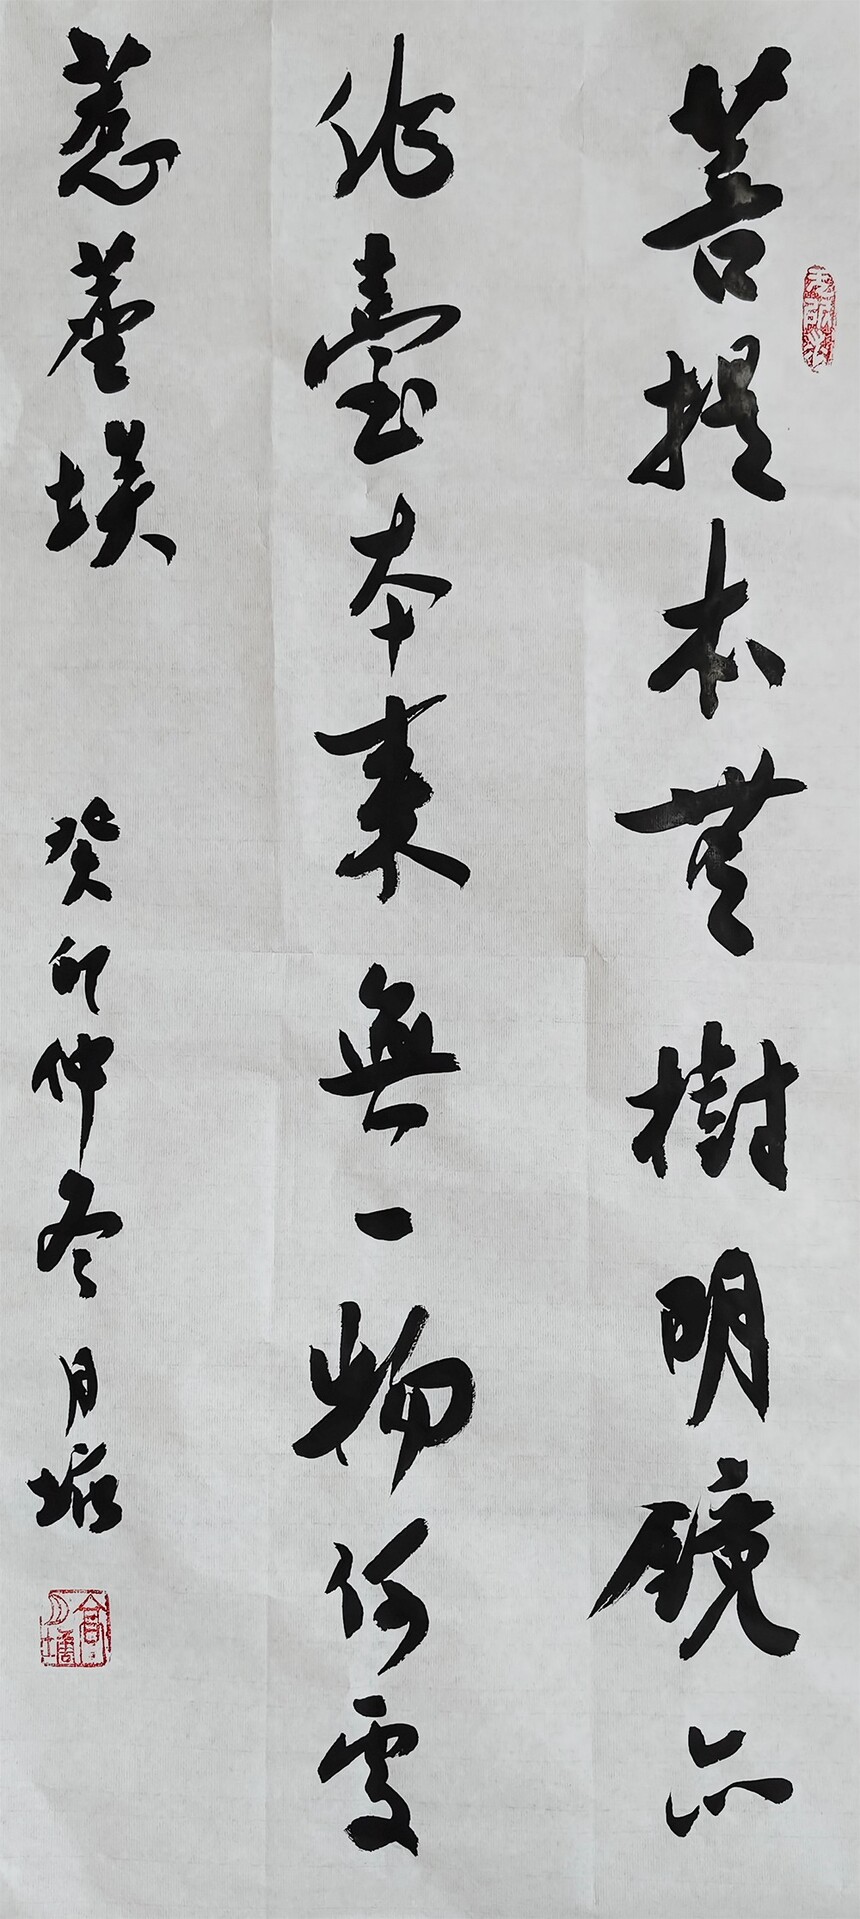 菩提本無樹明鏡亦
非臺本来無一物何處
惹塵埃
癸卯仲冬月